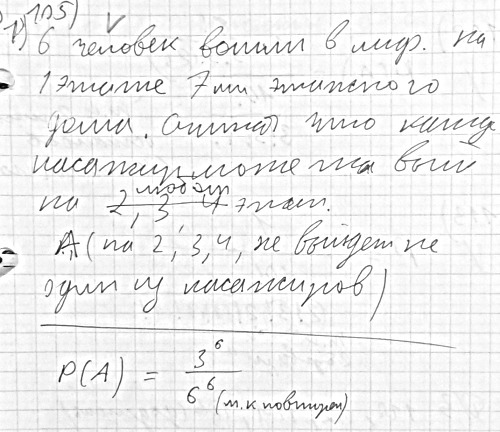 1) 105) V
6 человек вошли в лиф. на
1 этаже 7ми этажного
дома. Считая что кажд
пасажир может на вый
на любом
2, 3, 4 этаж.
A (на 2, 3, 4, не выйдет не
один из пасажиров)
P(A) = 3^6 / 6^6 (т.к повторен)